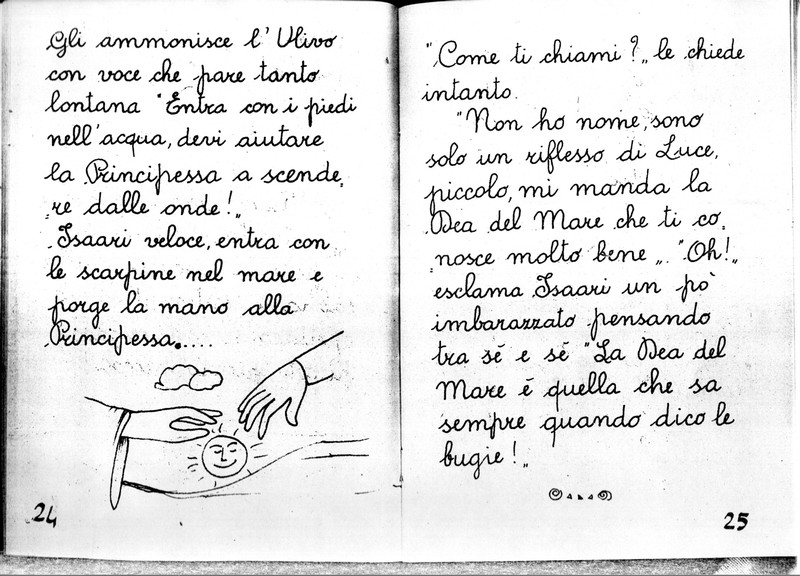 Gli ammonisce l'Ulivo
con voce che pare tanto
lontana "Entra con i piedi
nell'acqua, devi aiutare
la Principessa a scende,
,re dalle onde!„
Isaari veloce, entra con
le scarpine nel mare e
porge la mano alla
Principessa....
24
"Come ti chiami?„ le chiede
intanto.
"Non ho nome, sono
solo un riflesso di Luce,
piccolo, mi manda la
Dea del Mare che ti co,
,nosce molto bene„. "Oh!„
esclama Isaari un pò
imbarazzato pensando
tra sé e sé "La Dea del
Mare é quella che sa
sempre quando dico le
bugie!„
25